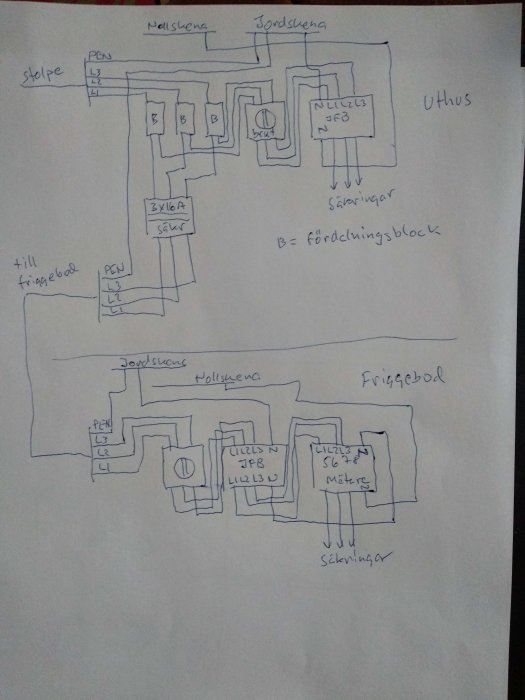 Nollskena Jordskena
PEN
stolpe
L3
L2
L1
N L1 L2 L3
JFB
N
B B B
brut
Uthus
säkringar
3x16A
säkr
B = fördelningsblock
till
friggebod
PEN
L3
L2
L1
Jordskena
Nollskena
Friggebod
PEN
L3
L2
L1
L1 L2 L3 N
JFB
L1 L2 L3 N
L1 L2 L3 N
5678
Mätare
N
säkringar